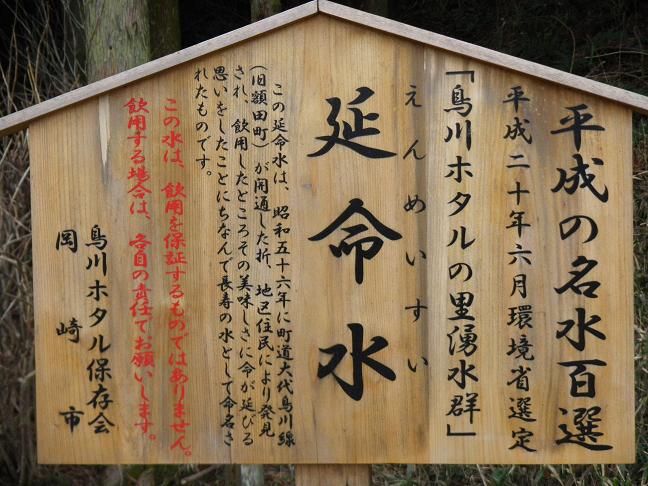 平成の名水百選
平成二十年六月環境省選定
「鳥川ホタルの里湧水群」
えんめいすい
延命水
この延命水は、昭和五十六年に町道大代鳥川線
(旧額田町)が開通した折、地区住民により発見
され、飲用したところその美味しさに命が延びる
思いをしたことにちなんで長寿の水として命名さ
れたものです。
この水は、飲用を保証するものではありません。
飲用する場合は、各自の責任でお願いします。
鳥川ホタル保存会
岡崎市